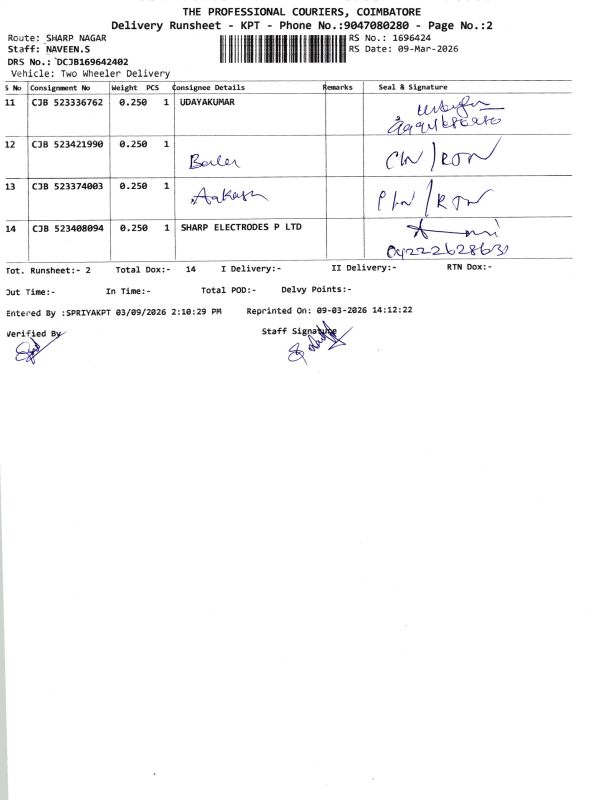 THE PROFESSIONAL COURIERS, COIMBATORE
Delivery Runsheet - KPT - Phone No.:9047080280 - Page No.:2
Route: SHARP NAGAR RS No.: 1696424
Staff: NAVEEN.S RS Date: 09-Mar-2026
DRS No.: DCJB169642402
Vehicle: Two Wheeler Delivery
S No Consignment No Weight PCS Consignee Details Remarks Seal & Signature
11 CJB 523336762 0.250 1 UDAYAKUMAR
12 CJB 523421990 0.250 1
13 CJB 523374003 0.250 1 Aakash
14 CJB 523408094 0.250 1 SHARP ELECTRODES P LTD
Tot. Runsheet:- 2 Total Dox:- 14 I Delivery:- II Delivery:- RTN Dox:-
Out Time:- In Time:- Total POD:- Delvy Points:-
Entered By :SPRIYAKPT 03/09/2026 2:10:29 PM Reprinted On: 09-03-2026 14:12:22
Verified By Staff Signature